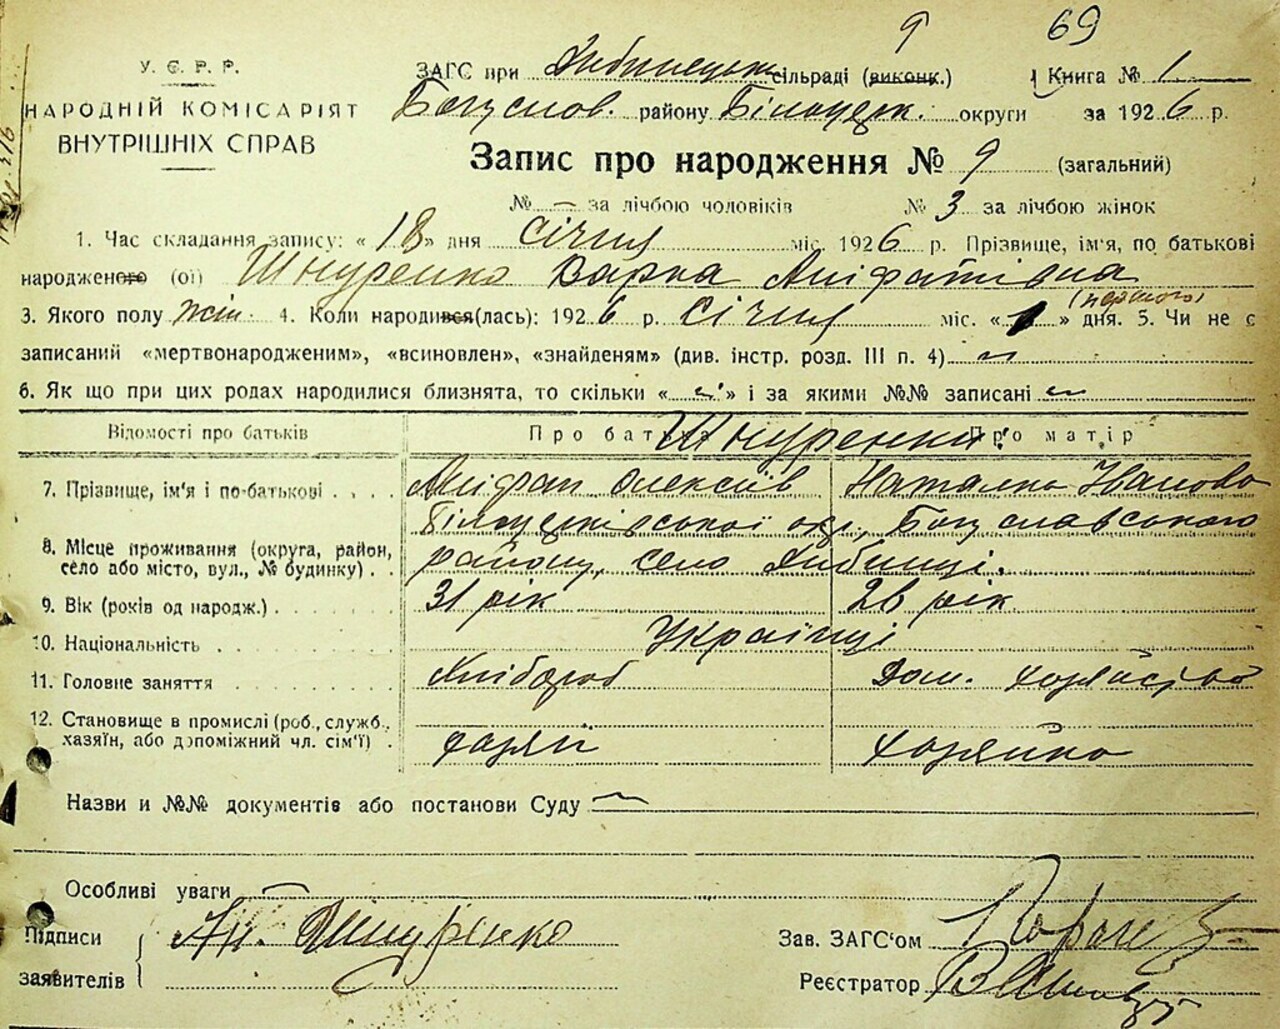 9 69
У. Є. Р. Р.
НАРОДНІЙ КОМІСАРІЯТ
ВНУТРІШНІХ СПРАВ
ЗАГС при Дибинецьк. сільраді (виконк.) Книга № 1
Богуслов. району Білоцерк. округи за 1926 р.
Запис про народження № 9 (загальний)
№ — за лічбою чоловіків № 3 за лічбою жінок
1. Час складання запису: «18» дня січня міс. 1926 р. Прізвище, ім'я, по батькові
народженого (ої) Шнуренко Варка Аніфатівна
3. Якого полу жін. 4. Коли народився(лась): 1926 р. січня міс. «1» (первого) дня. 5. Чи не є
записаний «мертвонародженим», «всиновлен», «знайденям» (див. інстр. розд. III п. 4)
6. Як що при цих родах народилися близнята, то скільки « » і за якими №№ записані
Відомості про батьків Про батька Про матір
Шнуренки:
7. Прізвище, ім'я і по-батькові Олексіїв Наталка Іванова
Білоцерківської окр., Богуславського
8. Місце проживання (округа, район,
село або місто, вул., № будинку) району, село Дибинці.
9. Вік (років од народж.) 31 рік 26 рік
10. Національність Українці
11. Головне заняття Хлібороб Дом. хозяйство
12. Становище в промислі (роб., служб.,
хазяїн, або допоміжний чл. сім'ї) хазяїн хозяйка
Назви и №№ документів або постанови Суду
Особливі уваги
Підписи
заявителів
Ан. Шнуренко
Зав. ЗАГС'ом
Реєстратор